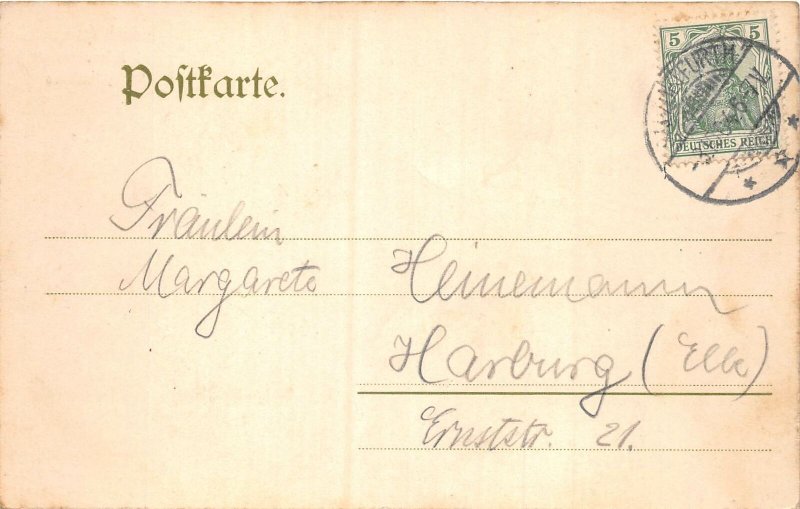 Postkarte.
5 5
DEUTSCHES REICH
Fräulein
Margarete Heinemann
Harburg (Elbe)
Ernststr. 21.